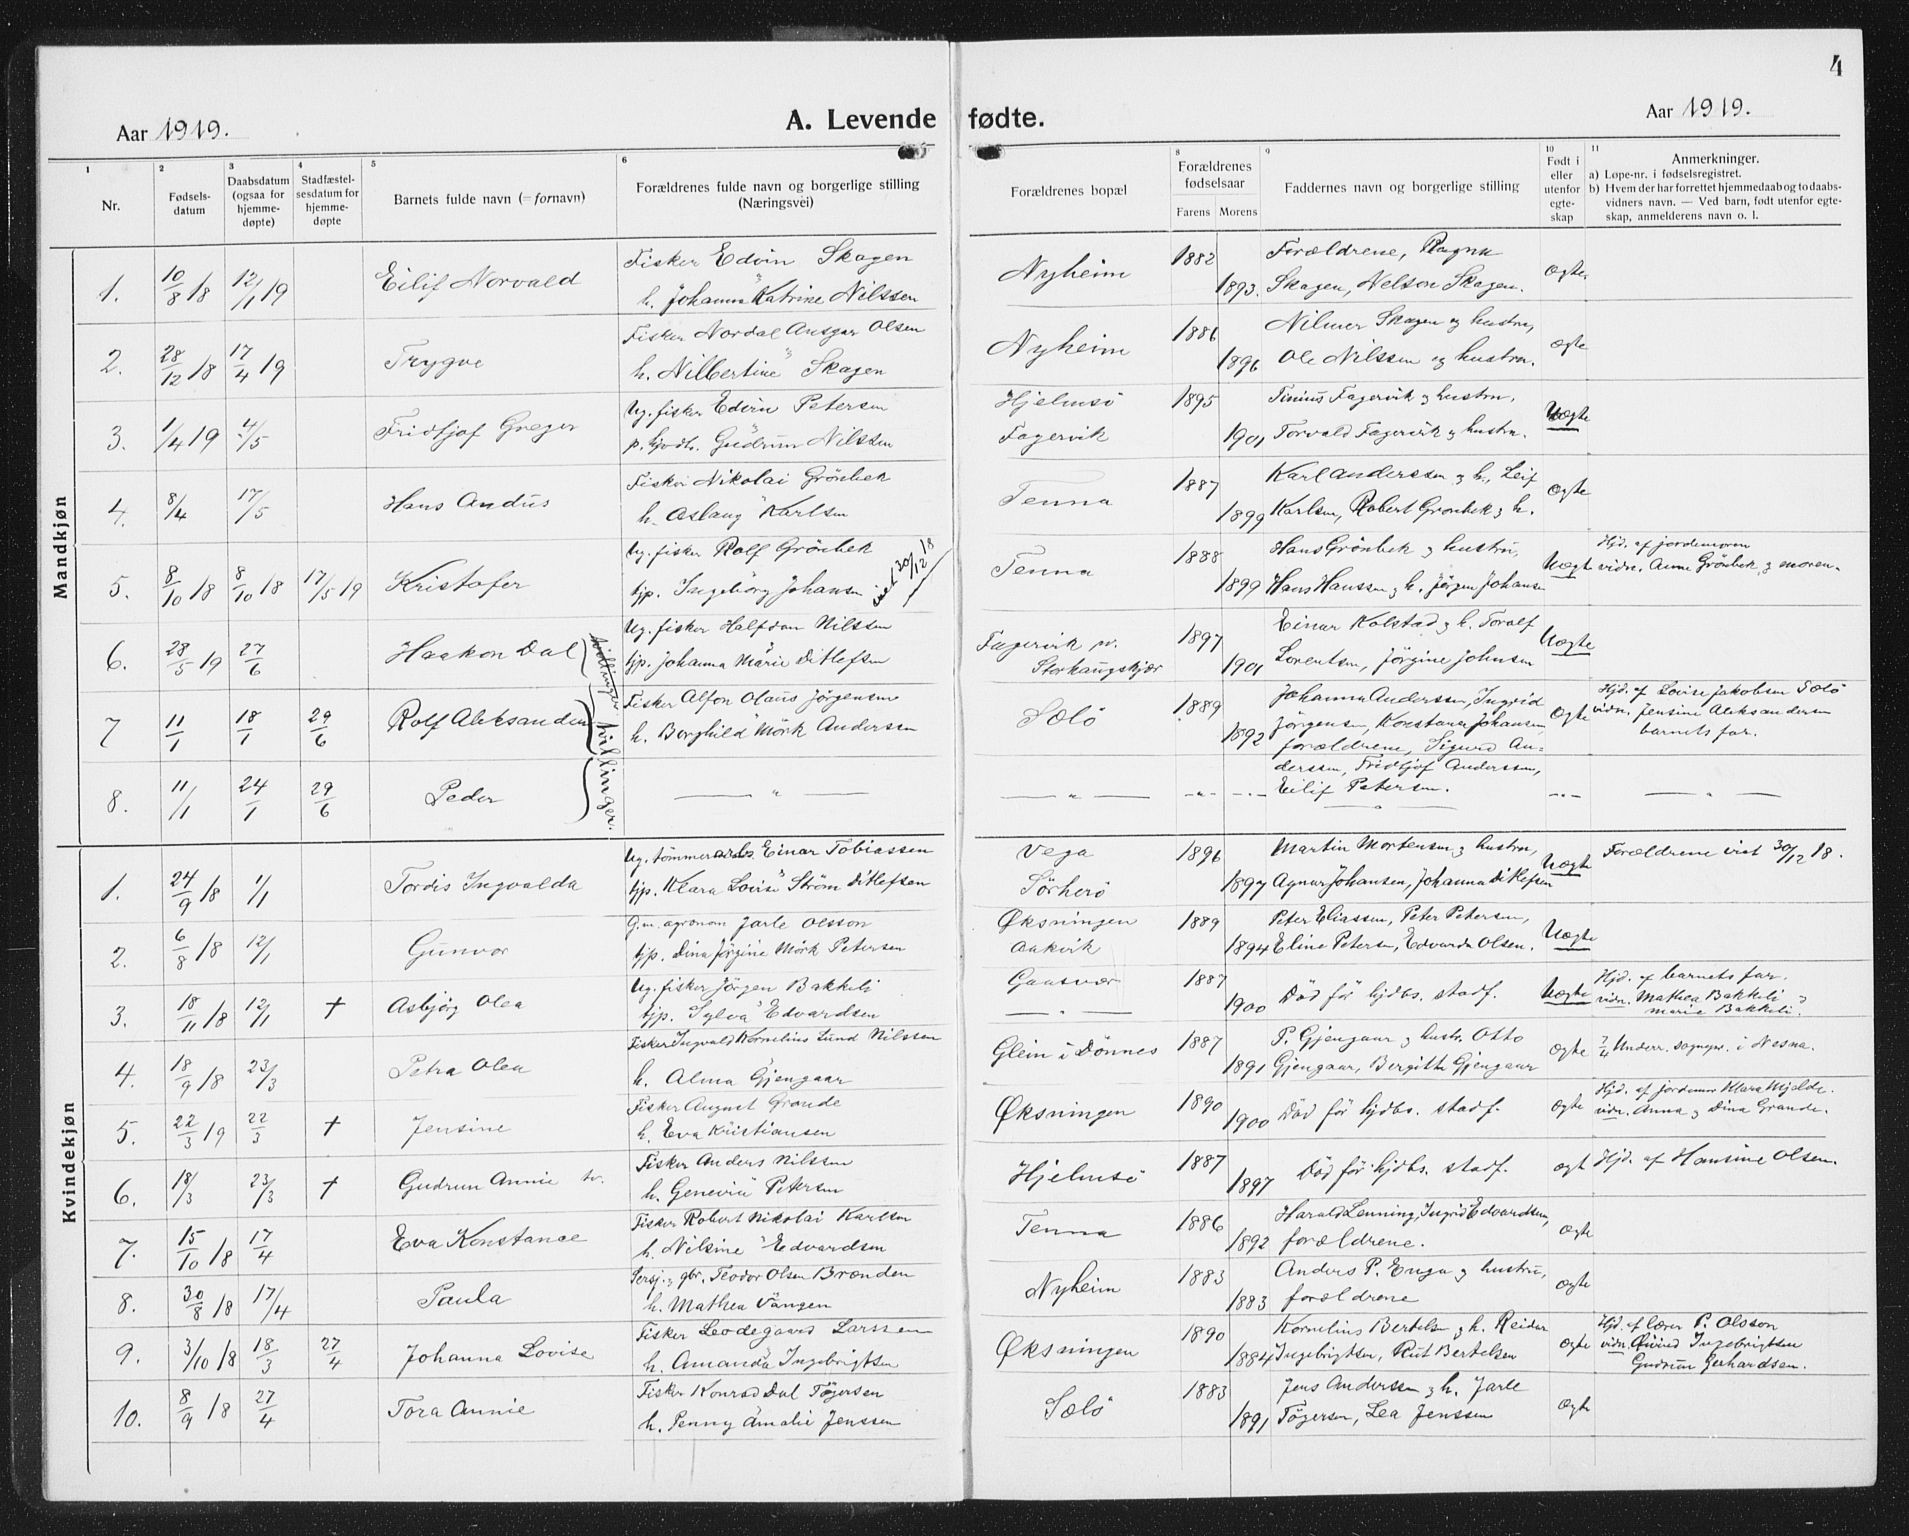 4
Aar 1919.
A. Levende fødte.
Aar 1919.
1 Nr.
2 Fødsels-datum
3 Daabsdatum (ogsaa for hjemme-døpte)
4 Stadfæstel-sesdatum for hjemme-døpte
5 Barnets fulde navn (= fornavn)
6 Forældrenes fulde navn og borgerlige stilling (Næringsvei)
Forældrenes bopæl
8 Forældrenes fødselsaar
Farens Morens
9 Faddernes navn og borgerlige stilling
10 Født i eller utenfor egte-skap
11 Anmerkninger.
a) Løpe-nr. i fødselsregistret.
b) Hvem der har forrettet hjemmedaab og to daabs-vidners navn. — Ved barn, født utenfor egte-skap, anmelderens navn o. l.
Mandkjøn
1. 10/8 18 12/1 19 Eilif Norvald Fisker Edvin Skagen Nyheim 1882 Forældrene, Ragna ægte
h. Johanna Katrine Nilssen 1893. Skagen, Nelson Skagen.
2. 28/12 18 17/4 19 Trygve Fisker Nordal Ansgar Olsen Nyheim 1886 Nilmer Skagen og hustru, ægte
h. Nilbertine Skagen 1896 Ole Nilssen og hustru.
3. 1/4 19 4/5 Fridtjof Greger Ug. fisker Edvin Petersen Hjelmsö 1895 Tinius Fagervik og hustru, Uægte
p. Gudrun Nilssen Fagervik 1901 Torvald Fagervik og hustru.
4. 8/4 17/5 Hans Andus Fisker Nikolai Grönbek Tenna 1887 Karl Anderssen og h., Leif ægte
h. Aslaug Karlsen 1899 Karlsen, Robert Grönbek og h.
5. 8/10 18 8/10 18 17/5 19 Kristofer Ug. fisker Rolf Grönbek Tenna 1888 Hans Grönbek og hustru, Uægte Hjd. af jordemoren
tjp. Ingebörg Johansen viet 30/12 18 1899 Hans Hanssen og h. Jörgen Johansen vidn. Anne Grönbek og moren.
6. 28/5 19 27/6 Haakon Dal tvillinger Ug. fisker Halfdan Nilssen Fagervik pr. 1897 Einar Kolstad og h. Toralf Uægte
tjp. Johanna Marie Ditlefsen Storhaugskjær 1901 Lorentsen, Jörgine Johnsen
7 11/1 18/1 29/6 Rolf Aleksander tvillinger. Fisker Alfon Olaus Jörgensen Sölö 1889 Johanna Anderssen, Ingrid ægte Hjd. af Lovise Jakobsen Sölö
h. Borghild Mörk Andersen 1892 Jörgensen, Konstance Johansen, vidn. Jensine Aleksandersen
forældrene, Sigurd An- barnets far.
derssen, Fridtjof Anderssen,
8. 11/1 24/1 29/6 Peder — " — — " — - " - - " - Eilif Petersen. - " - — " —
— " —
Kvindekjøn
1. 24/9 18 1/1 Tordis Ingvalda Ug. tömmerarb. Einar Tobiassen Vega 1896 Martin Mortensen og hustru, Uægte Forældrene viet 30/12 18.
tjp. Klara Lovise Ström Ditlefsen Sörherö 1897 Agnar Johansen, Johanna Ditlefsen
2. 6/8 18 12/1 Gunvor G.m. agronom Jarle Olsson Øksningen 1889 Peter Eliassen, Peter Petersen, Uægte
tjp. Dina Jörgine Mörk Petersen Aakvik 1894 Eline Petersen, Edvarda Olsen.
3. 18/11 18 12/1 † Asbjörg Olea Ug. fisker Jörgen Bakkeli Gaasvær 1887 Död för hjdbs. stadf. Uægte Hjd. af barnets far.
tjp. Sylva Edvardsen — " — 1900 vidn. Mathea Bakkeli og
Marie Bakkeli.
4. 18/9 18 23/3 Petra Olea Fisker Ingvald Kornelius Lund Nilssen Glein i Dönnes 1887 P. Gjengaar og hustr. Otto ægte 7/4 Underr. sogнepr. i Nesna.
h. Alma Gjengaar 1891 Gjengaar, Bergitte Gjengaar
5. 22/3 19 22/3 † Jensine Fisker August Grande Øksningen 1890 Död för hjdbs. stadf. ægte Hjd. af jordemor Klara Mjelde.
h. Eva Kristiansen 1900 vidn. Anna og Dina Grande.
6. 18/3 23/3 † Gudrun Annie Fisker Anders Nilssen Hjelmsö 1887 Död för hjdbs. stadf. ægt Hjd. af Hansine Olsen.
h. Genevia Petersen 1897
7. 15/10 18 17/4 Eva Konstance Fisker Robert Nikolai Karlsen Tenna 1886 Harald Lenning, Ingrid Edvardsen, ægte
h. Nilsine Edvardsen 1892 forældrene.
8. 30/8 18 17/4 Paula Teodor Olsen Brænden Nyheim 1883 Anders P. Enga og hustru, ægte
h. Mathea Vangen 1883 forældrene
9. 3/10 18 18/3 27/4 Johanna Lovise Fisker Leodegaard Larssen Øksningen 1890 Kornelius Bertelsen og h. Reidar ægte Hjd. af lærer P. Olsson
h. Amanda Ingebrigtsen 1884 Ingebrigtsen, Rut Bertelsen vidn. Öivind Ingebrigtsen
Gudrun Gerhardsen.
10. 8/9 18 27/4 Tora Annie Fisker Konrad Dal Tögersen Sölö 1883 Jens Anderssen og h. Jarle ægte
h. Penny Amalie Jenssen 1891 Tögersen, Lea Jenssen